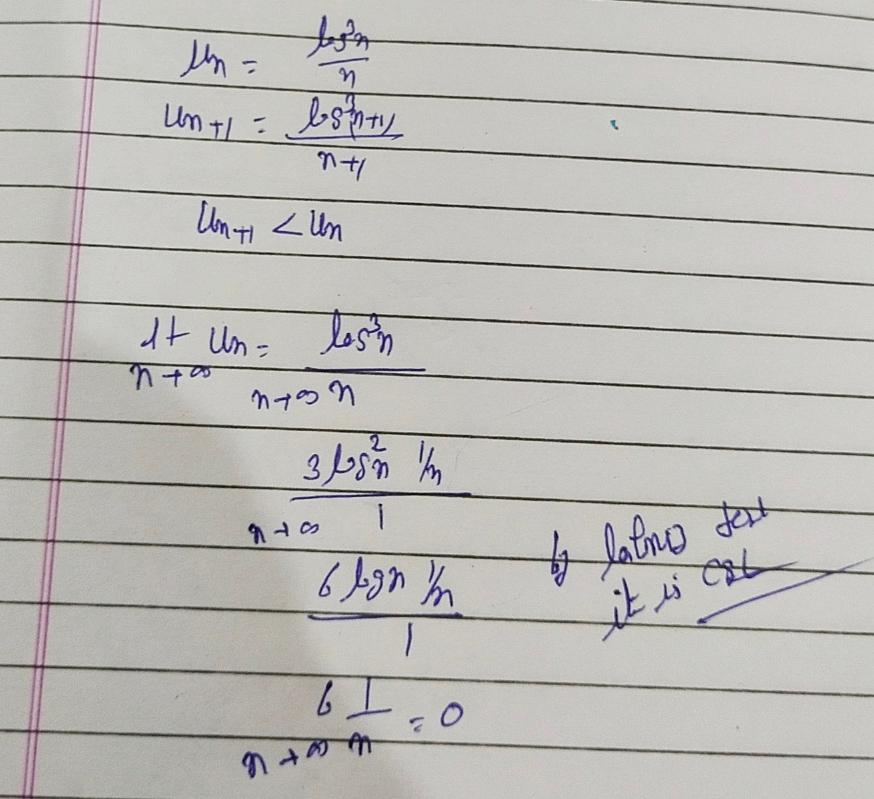 Un = log³n / n
Un+1 = log³(n+1) / n+1
Un+1 < Un
lt n→∞ Un = n→∞ log³n / n
n→∞ 3 log²n 1/n / 1
6 log n 1/n / 1
n→∞ 6 1/n = 0
by test
it is cgt